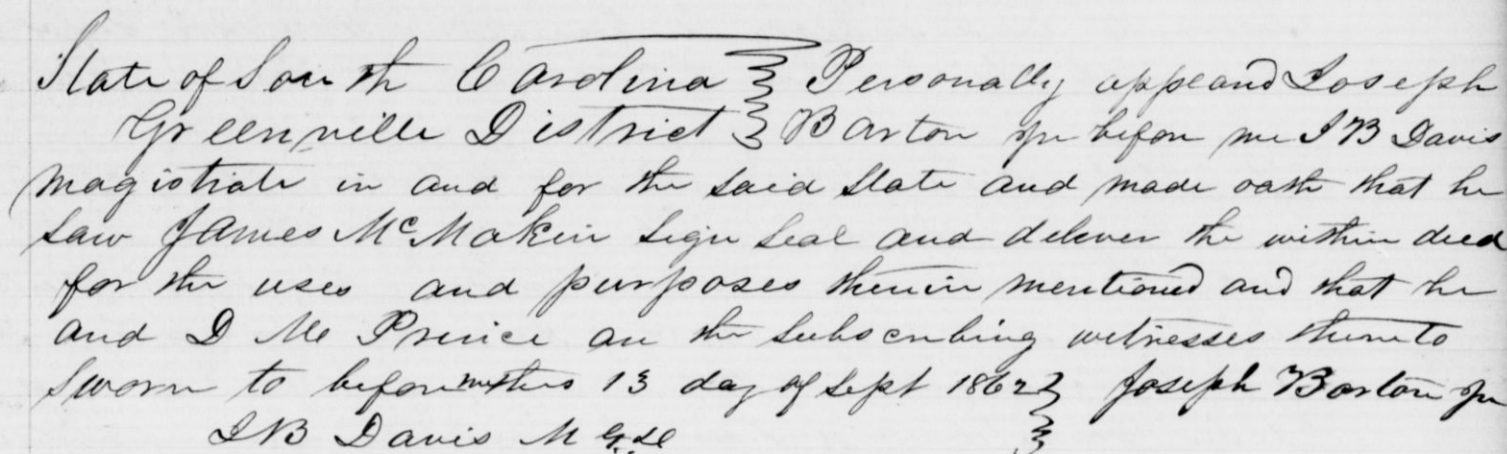 State of South Carolina } Personally appeard Joseph
Greenville District } Barton Jr before me J B Davis
magistrate in and for the said State and made oath that he
saw James McMakin sign seal and deliver the within deed
for the uses and purposes therein mentioned and that he
and D M Prince are the subscribing witnesses thereto
Sworn to before me this 13 day of Sept 1862 } Joseph Barton Jr
J B Davis M